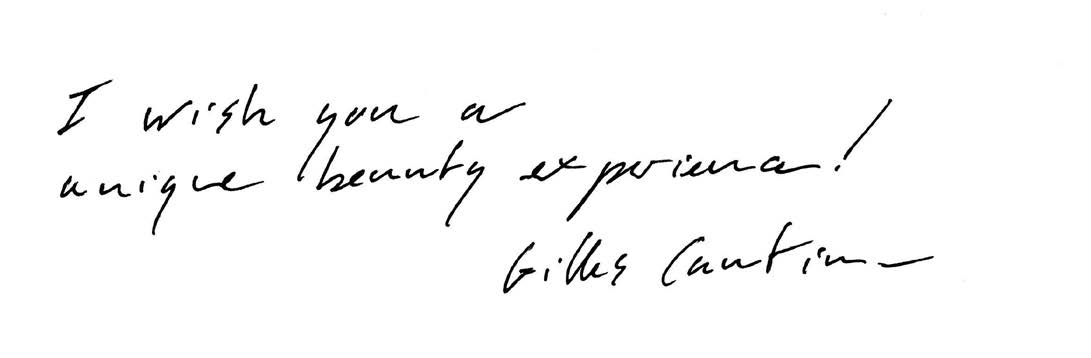 I wish you a
unique beauty experience!
Gilles Cantin